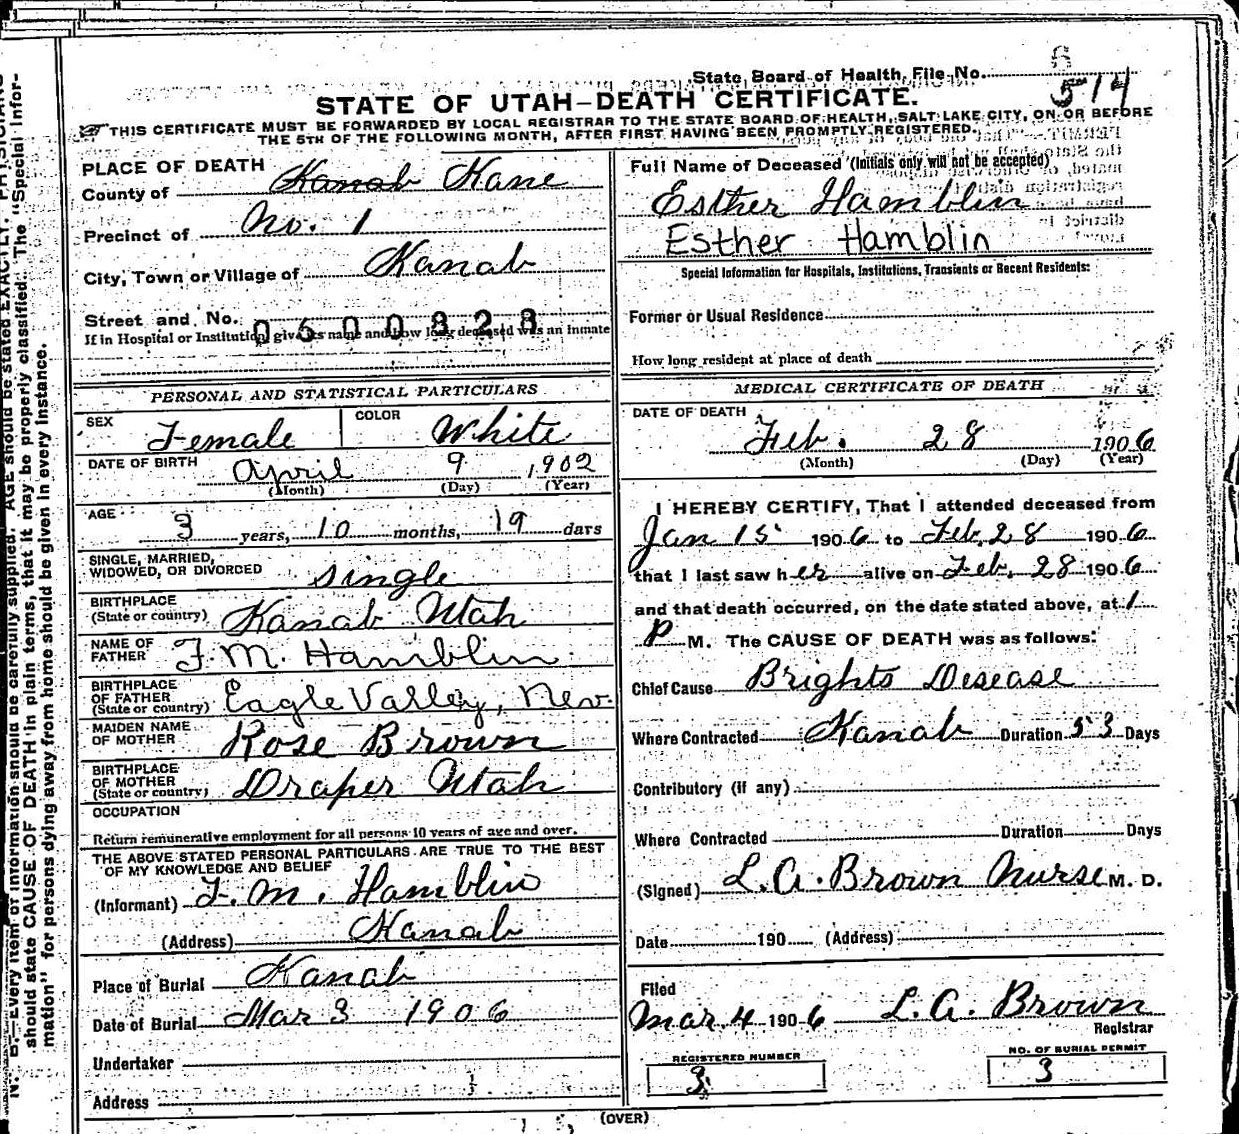 State Board of Health, File No. 6
514
STATE OF UTAH—DEATH CERTIFICATE.
THIS CERTIFICATE MUST BE FORWARDED BY LOCAL REGISTRAR TO THE STATE BOARD OF HEALTH, SALT LAKE CITY, ON OR BEFORE
THE 5TH OF THE FOLLOWING MONTH, AFTER FIRST HAVING BEEN PROMPTLY REGISTERED.
PLACE OF DEATH
County of Kanab Kane
Precinct of No. 1
City, Town or Village of Kanab
Street and No. 0600828
If in Hospital or Institution, give its name and how long deceased was an inmate
Full Name of Deceased (Initials only will not be accepted)
Esther Hamblin
Esther Hamblin
Special Information for Hospitals, Institutions, Transients or Recent Residents:
Former or Usual Residence
How long resident at place of death
PERSONAL AND STATISTICAL PARTICULARS
SEX Female COLOR White
DATE OF BIRTH April 9 1902
(Month) (Day) (Year)
AGE 3 years, 10 months, 19 days
SINGLE, MARRIED,
WIDOWED, OR DIVORCED single
BIRTHPLACE
(State or country) Kanab Utah
NAME OF
FATHER F. M. Hamblin
BIRTHPLACE
OF FATHER
(State or country) Eagle Valley, Nev.
MAIDEN NAME
OF MOTHER Rose Brown
BIRTHPLACE
OF MOTHER
(State or country) Draper Utah
OCCUPATION
Return remunerative employment for all persons 10 years of age and over.
THE ABOVE STATED PERSONAL PARTICULARS ARE TRUE TO THE BEST
OF MY KNOWLEDGE AND BELIEF
(Informant) F. M. Hamblin
(Address) Kanab
Place of Burial Kanab
Date of Burial Mar 3 1906
Undertaker
Address
MEDICAL CERTIFICATE OF DEATH
DATE OF DEATH
Feb. 28 1906
(Month) (Day) (Year)
I HEREBY CERTIFY, That I attended deceased from
Jan 15 1906 to Feb. 28 1906
that I last saw her alive on Feb. 28 1906
and that death occurred, on the date stated above, at 1
P M. The CAUSE OF DEATH was as follows:
Chief Cause Brights Disease
Where Contracted Kanab Duration 53 Days
Contributory (if any)
Where Contracted Duration Days
(Signed) L. A. Brown Nurse M. D.
Date 190 (Address)
Filed
Mar. 4 1906 L. A. Brown
Registrar
REGISTERED NUMBER
3
NO. OF BURIAL PERMIT
3
(OVER)
N. B.—Every item of information should be carefully supplied. AGE should be stated EXACTLY. PHYSICIANS
should state CAUSE OF DEATH in plain terms, that it may be properly classified. The "Special Infor-
mation" for persons dying away from home should be given in every instance.